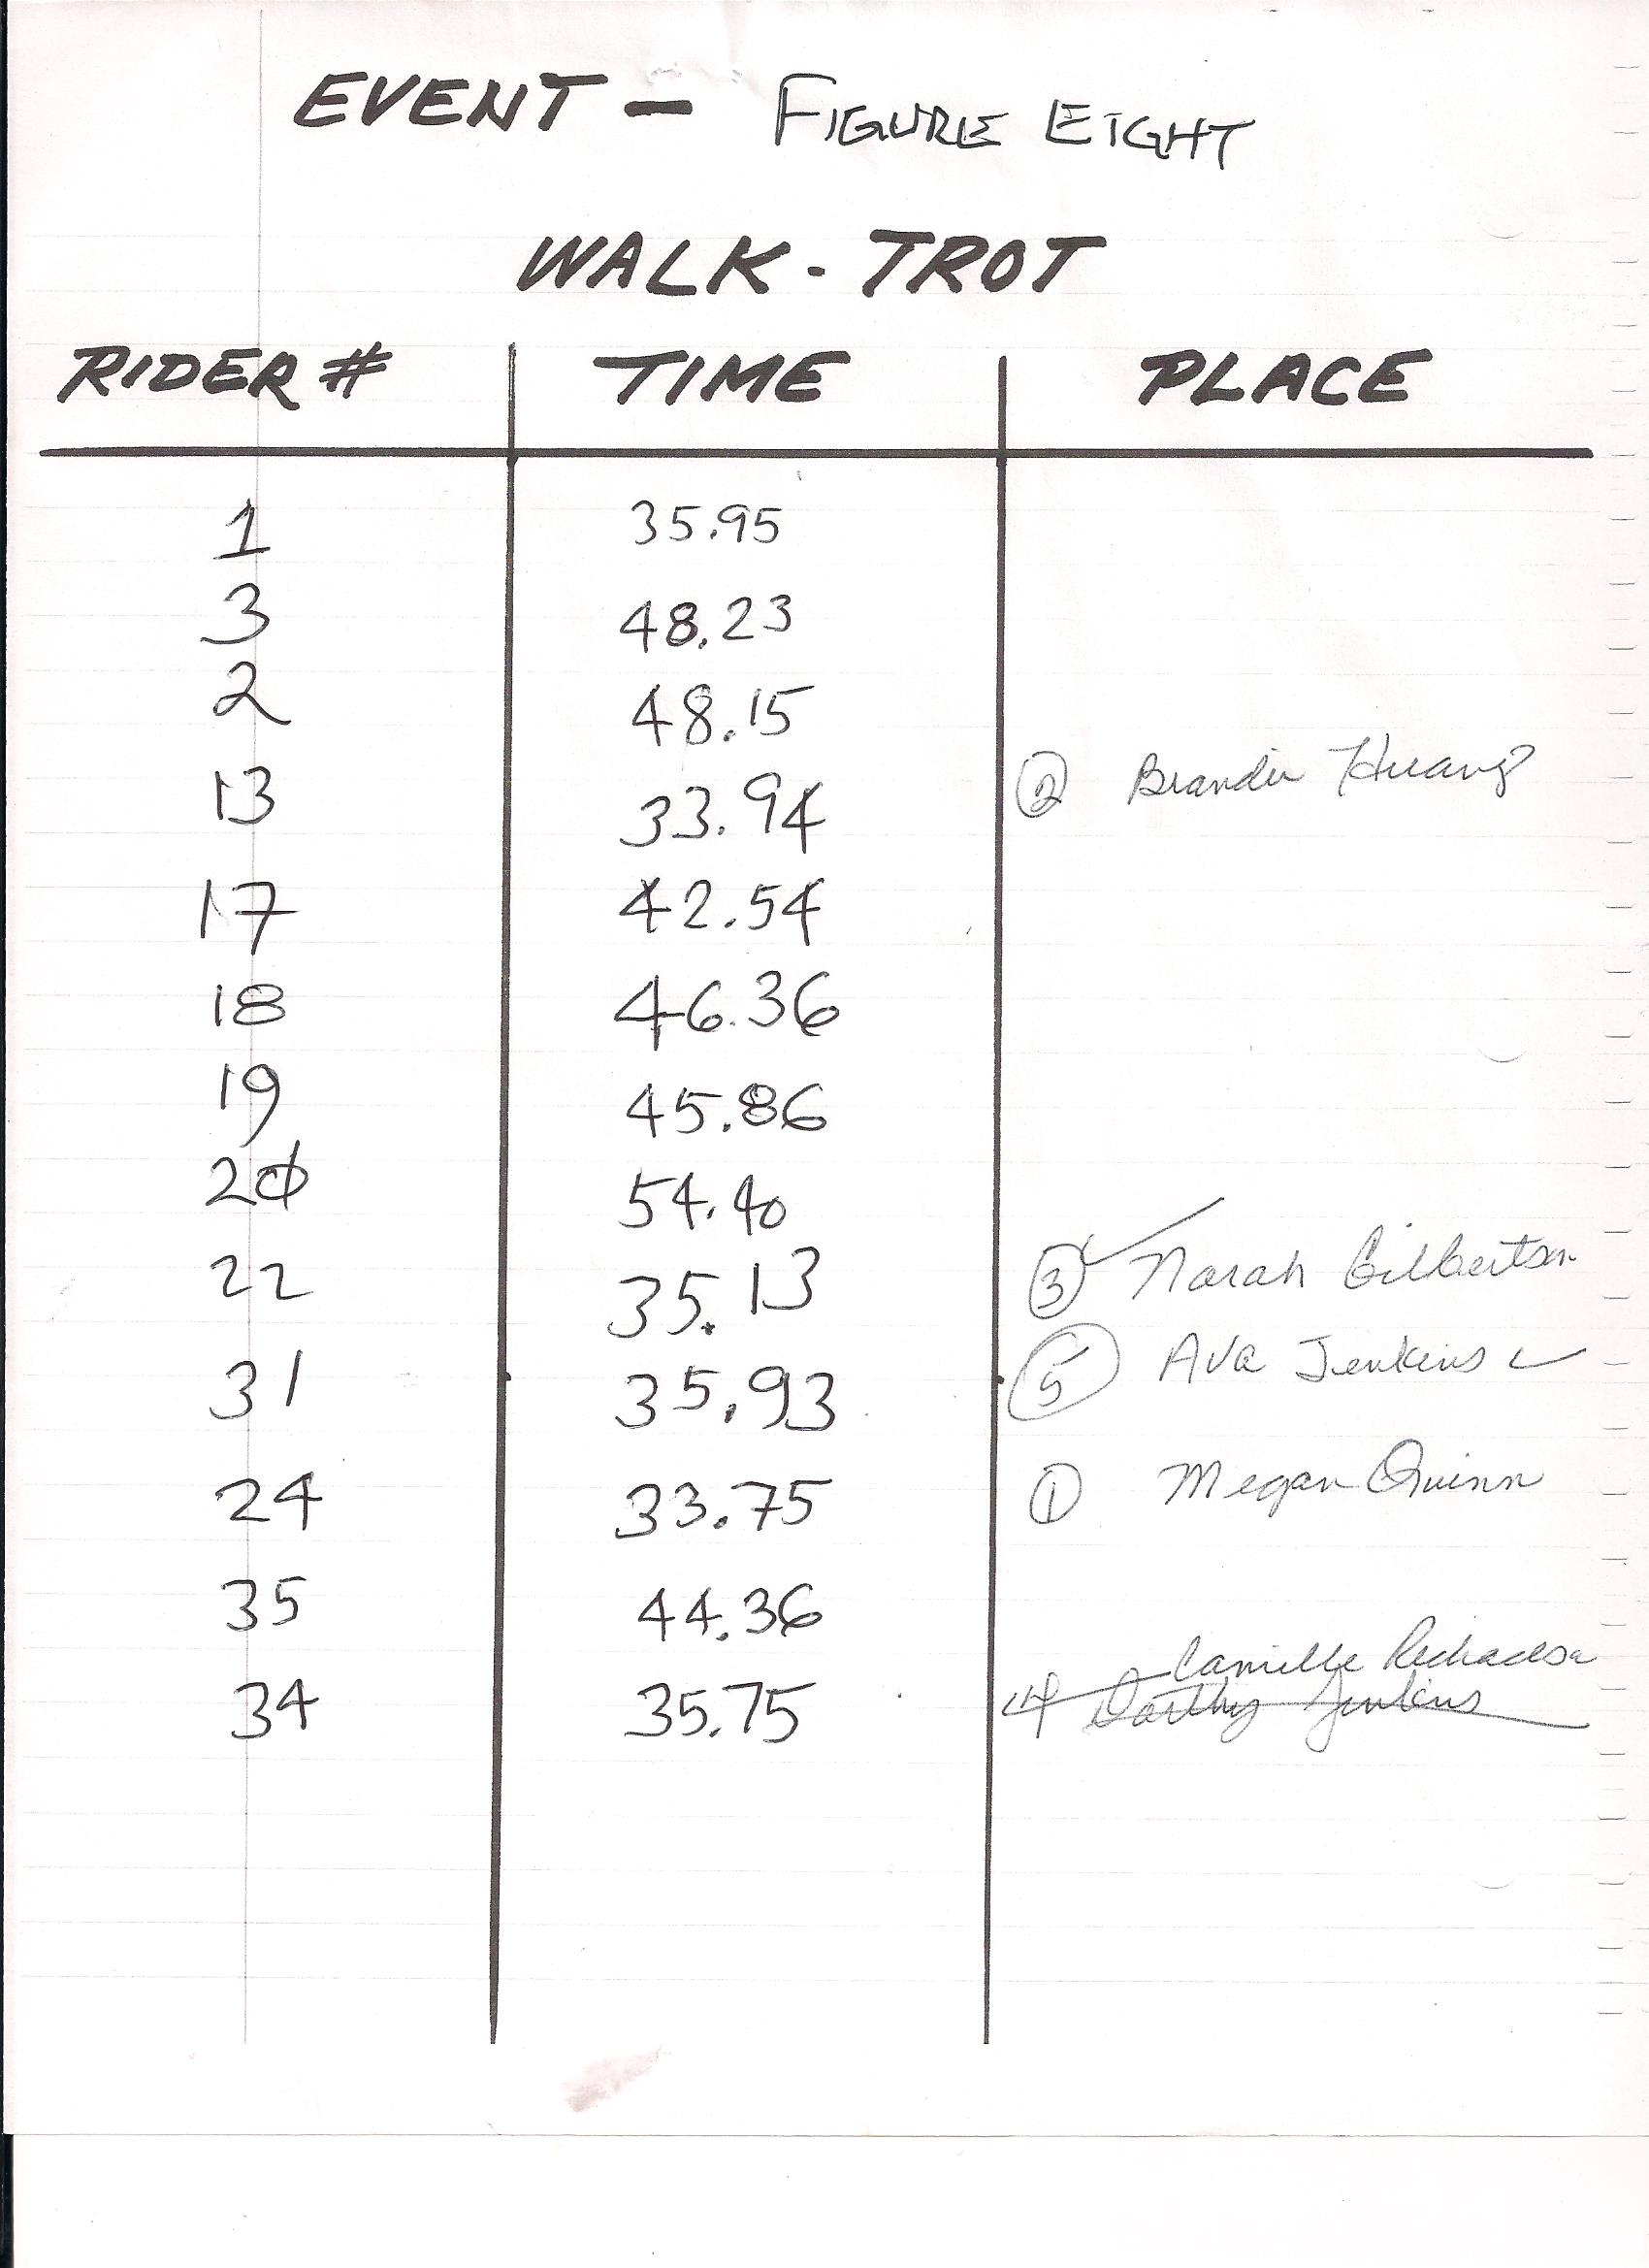 EVENT - FIGURE EIGHT
WALK - TROT
RIDER # TIME PLACE
1 35.95
3 48.23
2 48.15
13 33.94 2 Brandie Huang
17 42.54
18 46.36
19 45.86
20 54.40
22 35.13 3 Norah Gilbertson
31 35.93 5 Ava Jenkins
24 33.75 1 Megan Quinn
35 44.36
Camille
34 35.75 4 Jenkins